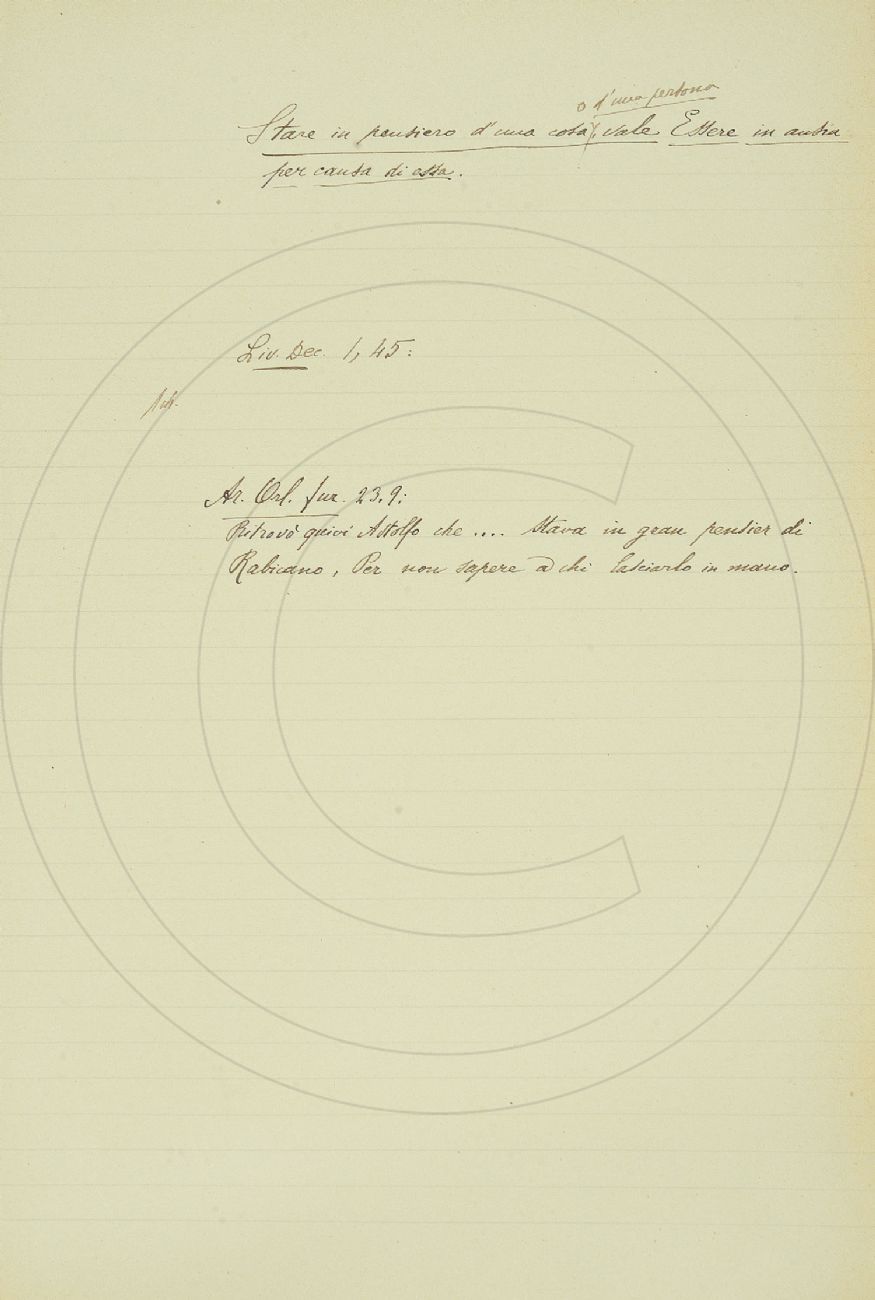 o d'una persona
Stare in pensiero d'una cosa, vale Essere in ansia
per causa di essa.
Liv. Dec. 1, 45:
Ar. Orl. fur. 23. 9:
Ritrovò quivi Astolfo che .... stava in gran pensier di
Rabicano, Per non sapere a chi lasciarlo in mano.